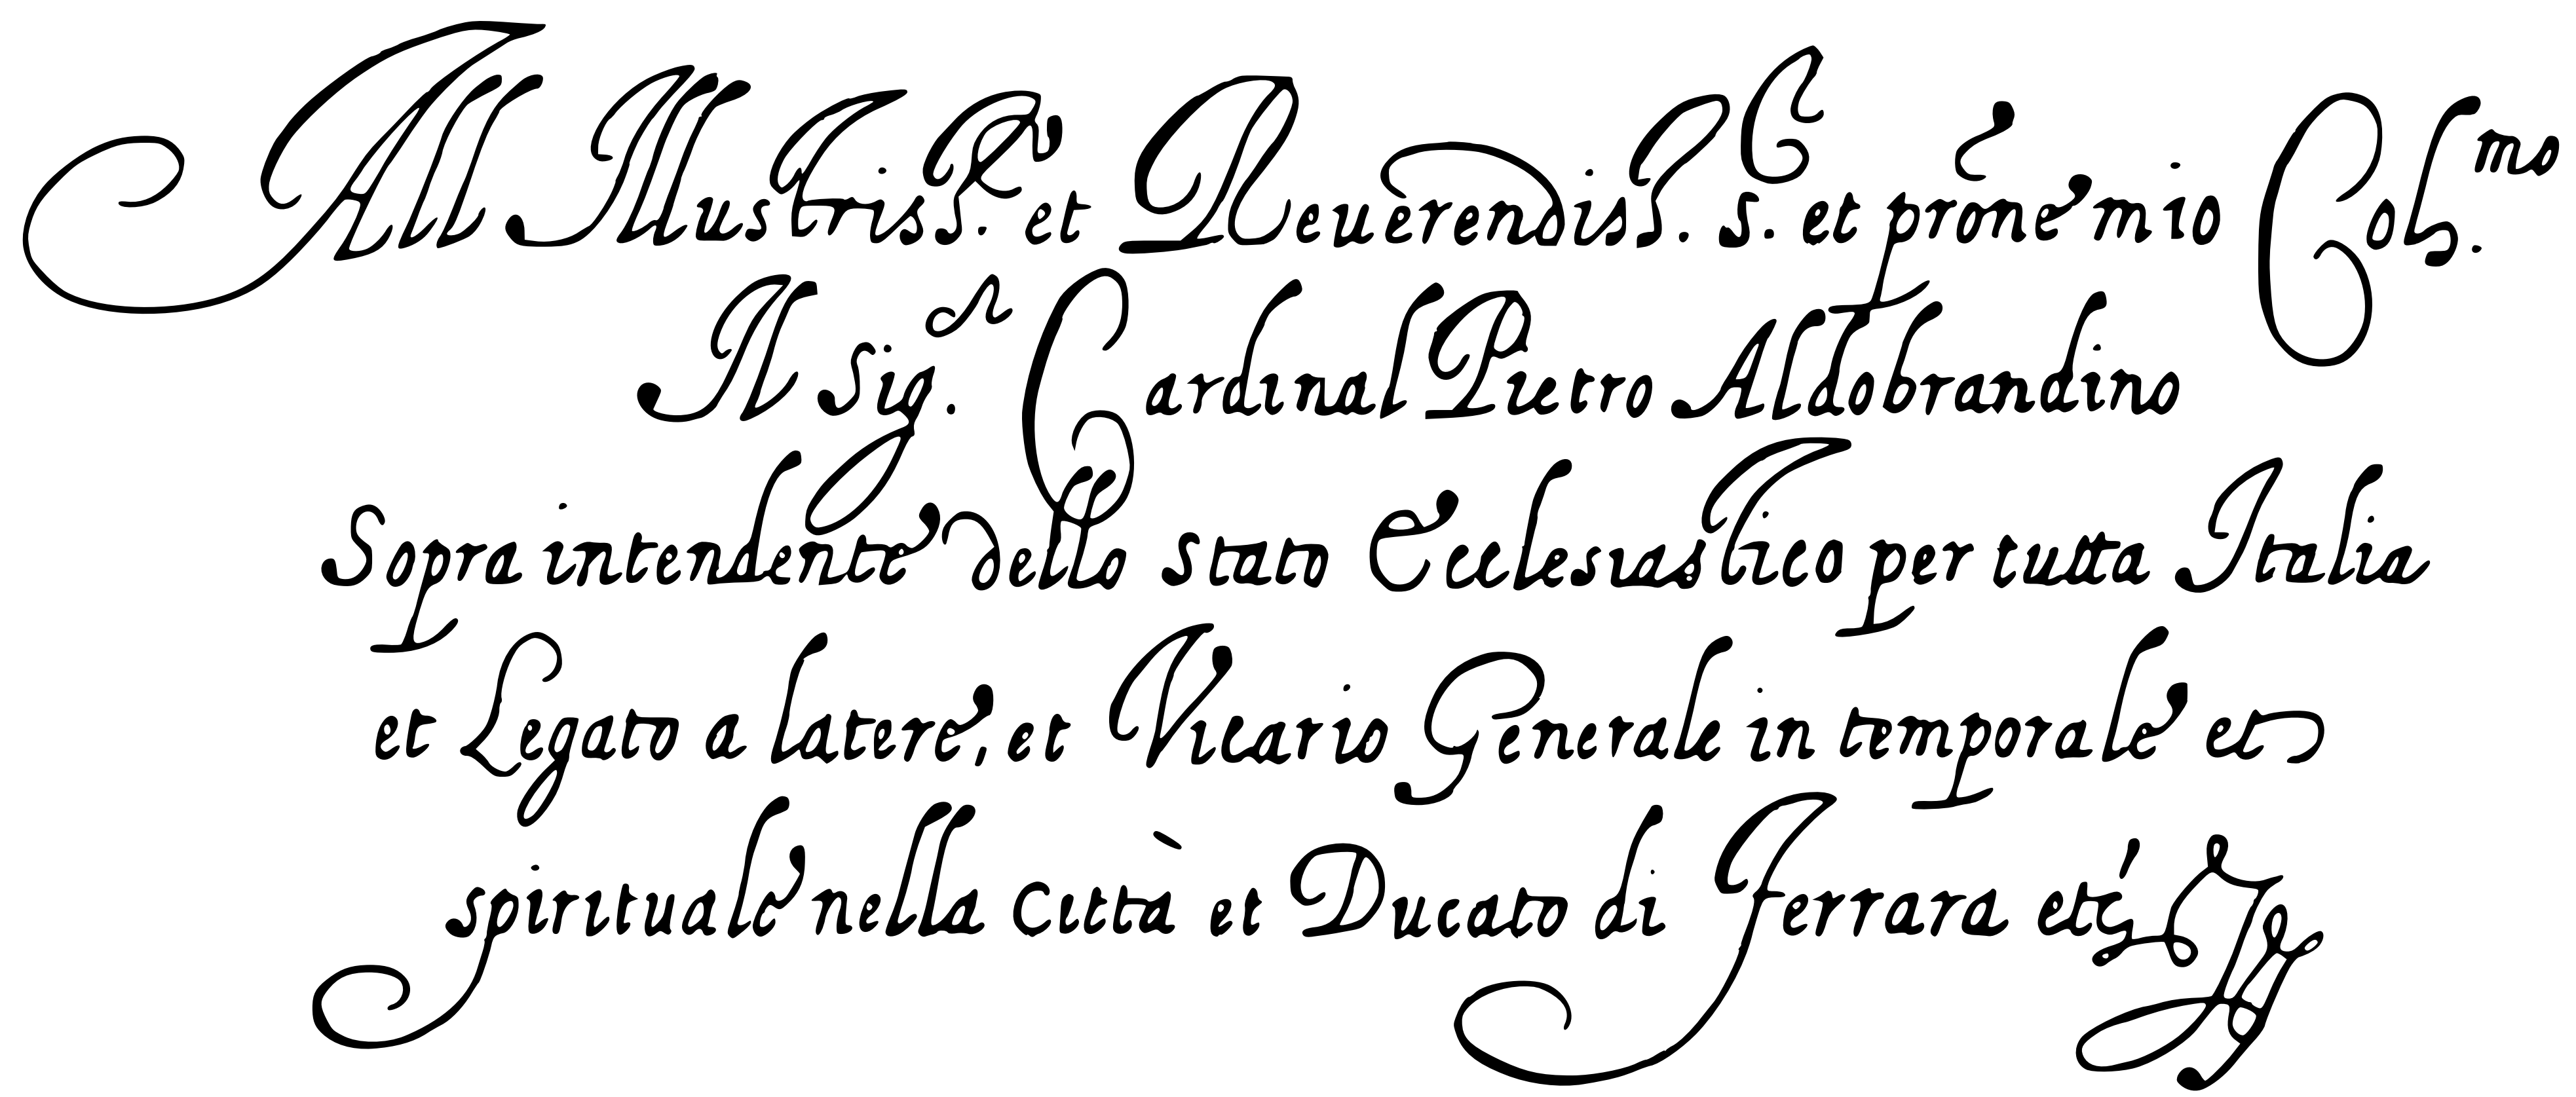 All Illustriss. et Reuerendiss. s. et prone mio Col.mo
Il sig. Cardinal Pietro Aldobrandino
Sopra intendente dello stato Ecclesiastico per tutta Italia
et Legato a latere, et Vicario Generale in temporale et
spirituale nella Città et Ducato di Ferrara etc